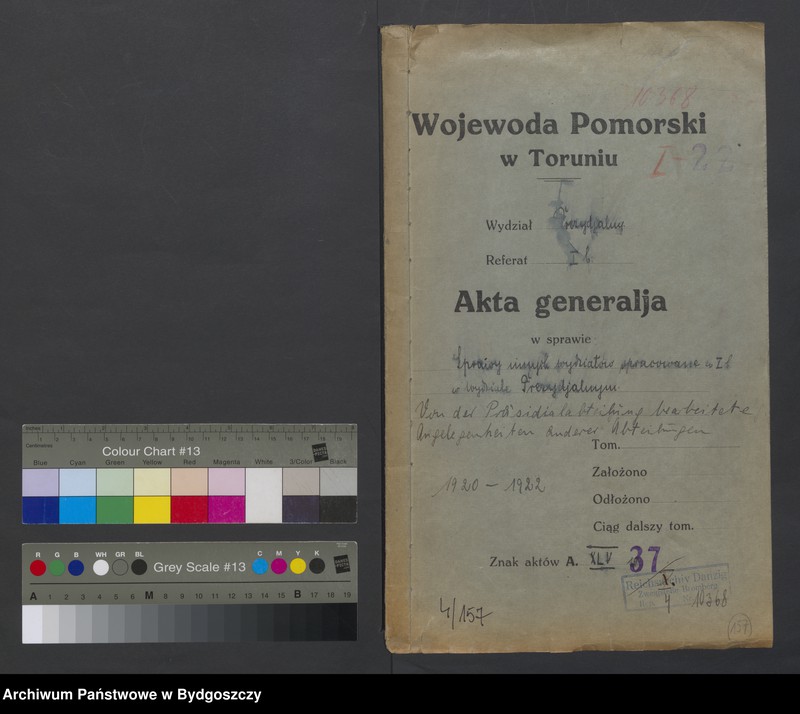 10368
Wojewoda Pomorski
w Toruniu
I-22
Wydział Prezydjalny
Referat I b
Akta generalja
w sprawie
Sprawy innych wydziałów opracowane w I b
w wydziale Prezydjalnym
Von der Präsidialabteilung bearbeitete
Angelegenheiten anderer Abteilungen
Tom.
Założono
1920 - 1922
Odłożono
Ciąg dalszy tom.
Znak aktów A. XLV 37
Reichsarchiv Danzig
Zweigstelle Bromberg
10368
4/157
157
Inches
Centimetres
Colour Chart #13
Blue Cyan Green Yellow Red Magenta White 3/Color Black
R G B WH GR BL Grey Scale #13 C M Y K
A 1 2 3 4 5 6 M 8 9 10 11 12 13 14 15 B 17 18 19
Archiwum Państwowe w Bydgoszczy